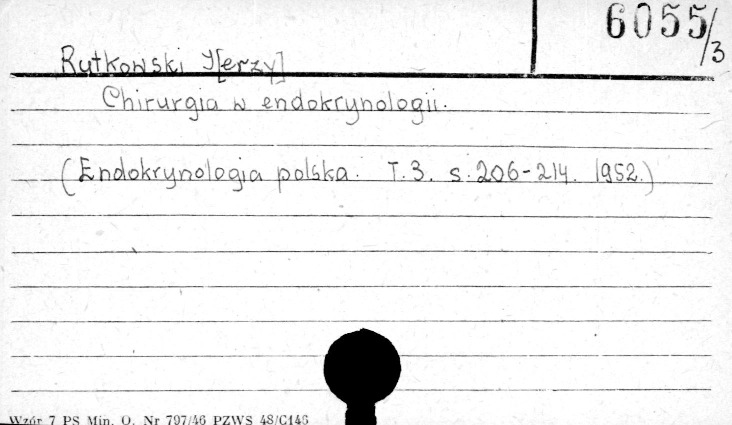 6055/3
Rutkowski J[erzy]
Chirurgia w endokrynologii.
(Endokrynologia polska. T.3. s.206-214. 1952.)
Wzór 7 PS Min. O. Nr 797/46 PZWS 48/C146